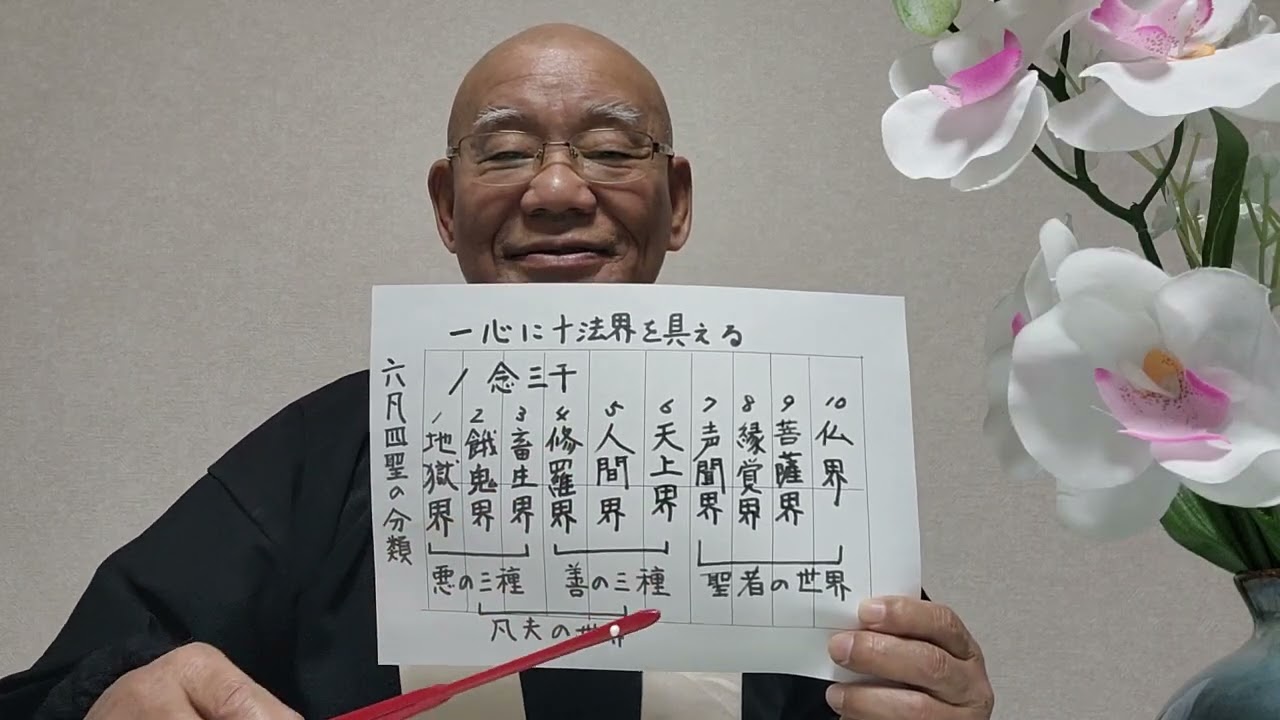 一心に十法界を具える
一念三千
六凡四聖の分類
1 地獄界
2 餓鬼界
3 畜生界
4 修羅界
5 人間界
6 天上界
7 声聞界
8 縁覚界
9 菩薩界
10 仏界
悪の三種
善の三種
聖者の世界
凡夫の世界